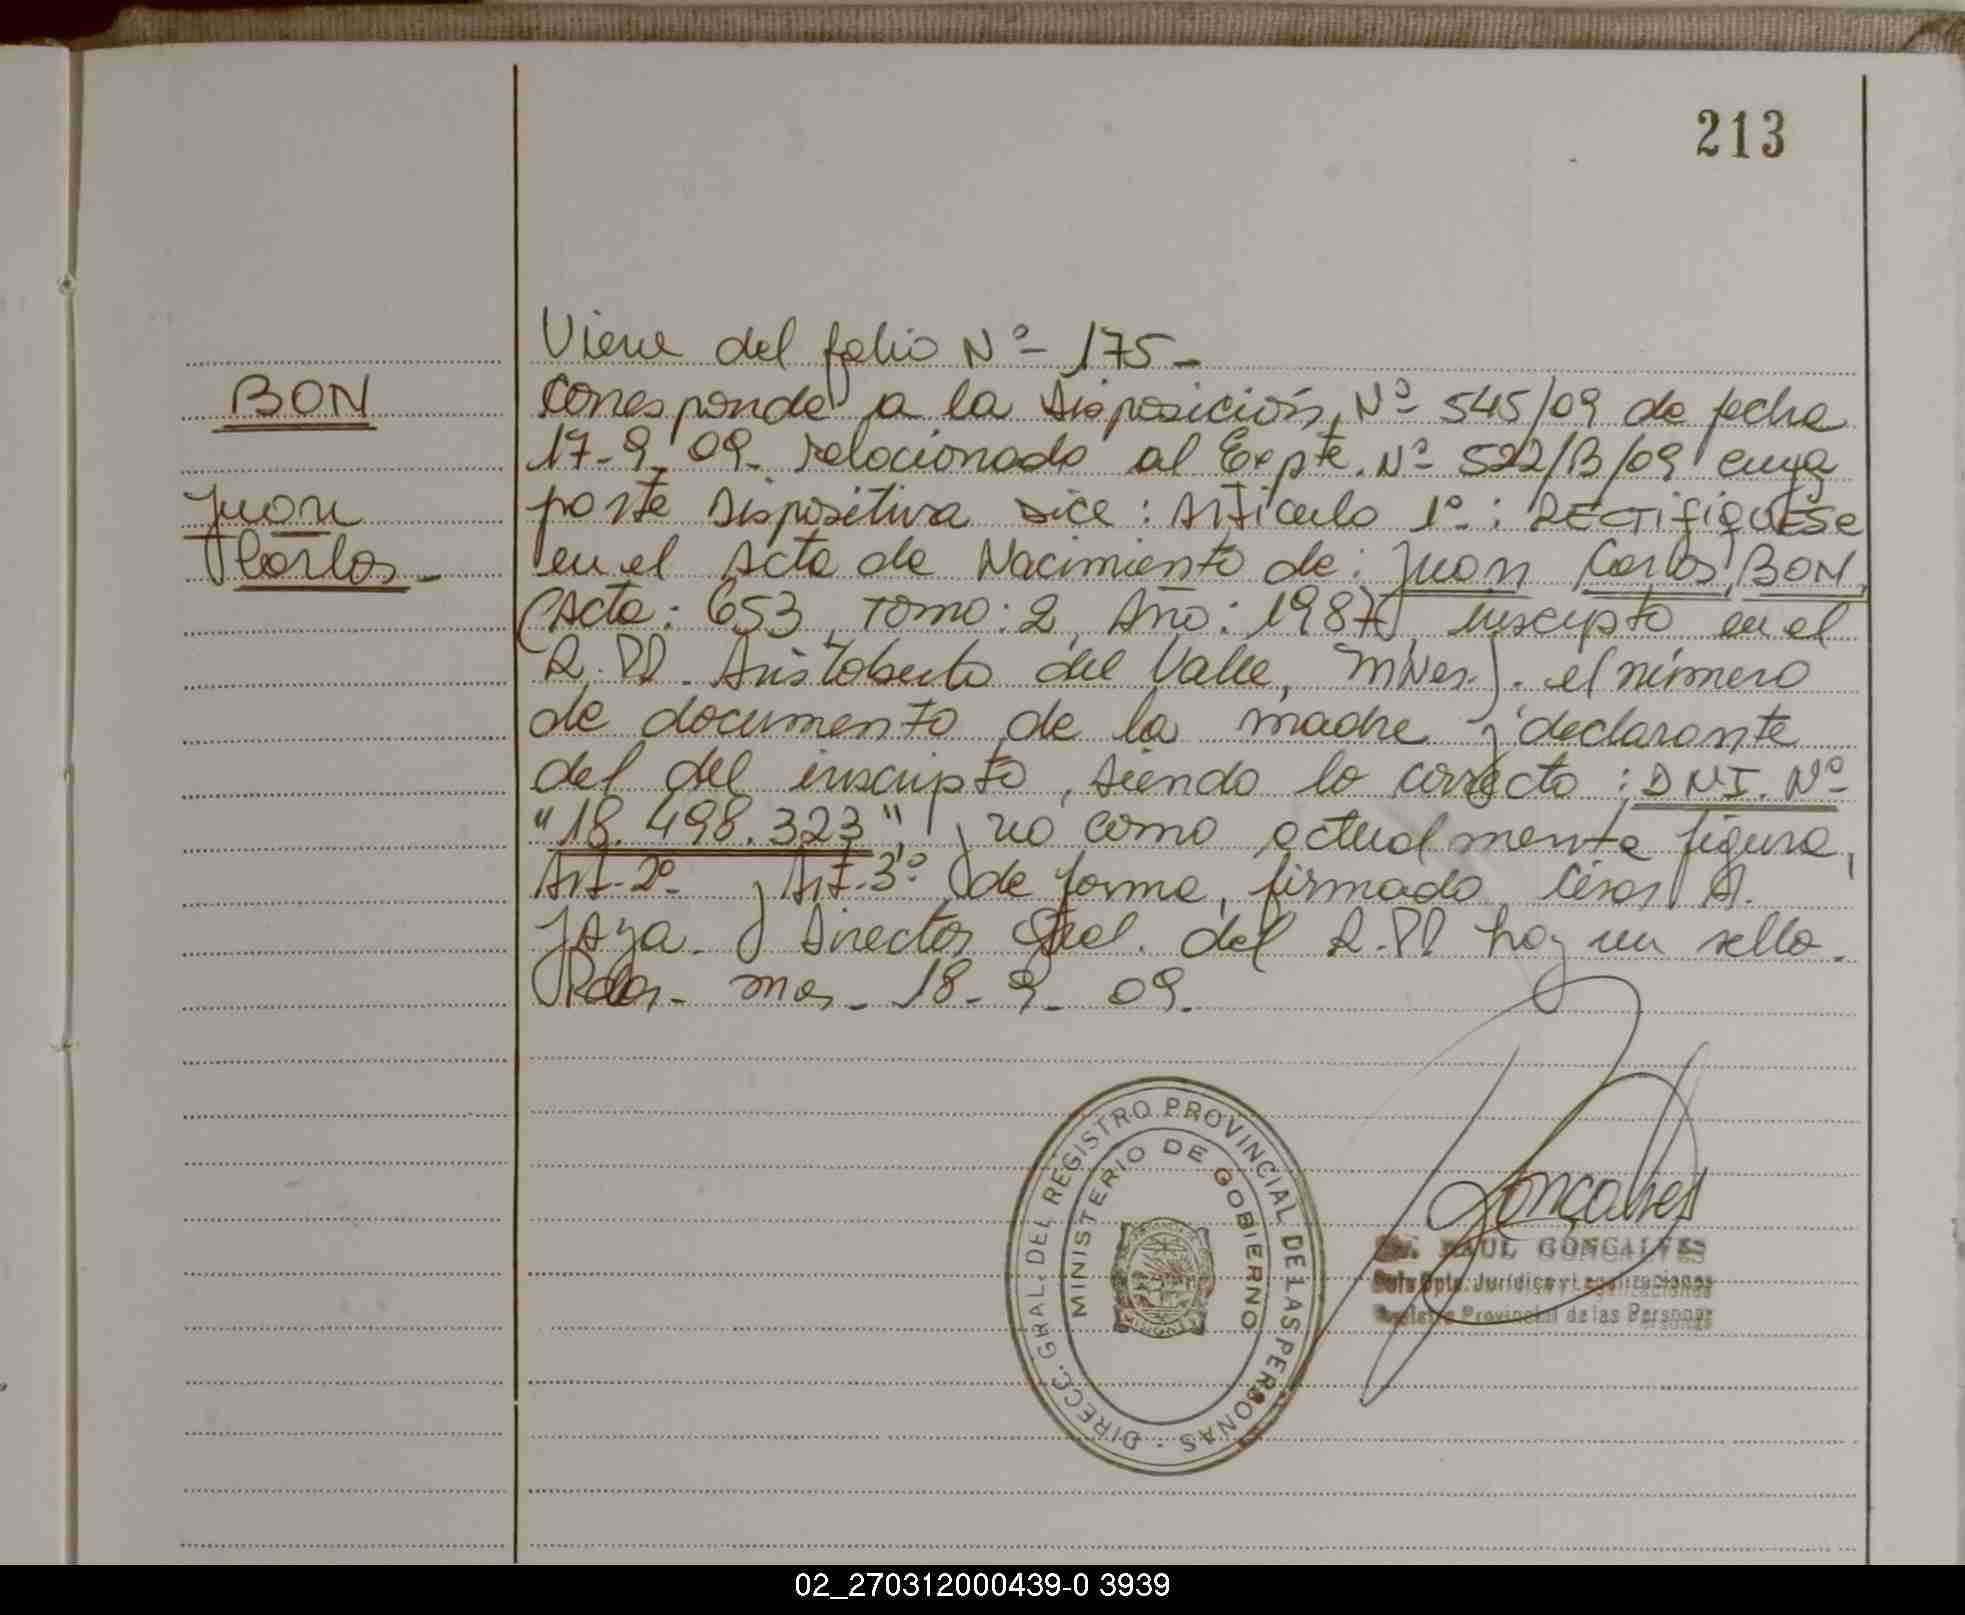 213
Viene del folio Nº- 175-
BON
Corresponde a la Disposición Nº 545/09 de fecha
17-9-09- relacionado al Expte. Nº 522/B/09 cuya
Juan
parte dispositiva dice: Artículo 1º: RECTIFIQUESE
Carlos-
en el Acta de Nacimiento de: Juan Carlos BON,
(Acta: 653, Tomo: 2, Año: 1987, inscripto en el
R.PP. Aristóbulo del Valle, Mnes.). el número
de documento de la madre y declarante
del del inscripto, siendo lo correcto: DNI. Nº
"18.498.323", y no como actualmente figura,
Art-2º- y Art-3º de forma, firmado César A.
Director Gral. del R.PP hay un sello-
Pdas- mes- 18-9-09-
DIRECC. GRAL. DEL REGISTRO PROVINCIAL DE LAS PERSONAS -
MINISTERIO DE GOBIERNO
MISIONES
Gonçalves
Dr. RAUL GONCALVES
Jefe Dpto. Jurídico y Legalizaciones
Registro Provincial de las Personas
02_270312000439-0 3939